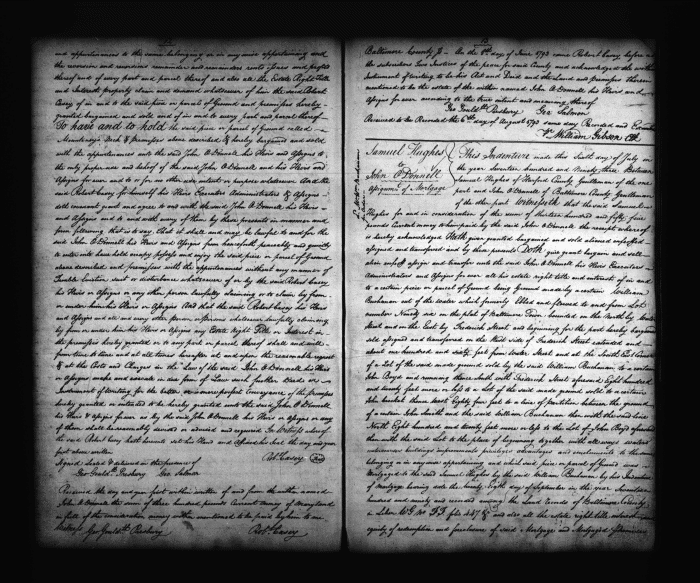 and appurtenances to the same belonging or in any wise appertaining and
the reversion and reversions remainder and remainders rents issues and profits
thereof and of every part and parcel thereof and also all the Estate Right Title
and Interest property claim and demand whatsoever of him the said Robert
Casey of in and to the said piece or parcel of Ground and premises hereby
granted bargained and sold and of in and to every part and parcel thereof
To have and to hold the said piece or parcel of Ground called
& premises above described & hereby bargained and sold
with the appurtenances unto the said John O Donnell his Heirs and Assigns to
the only proper use and behoof of the said John O Donnell and his Heirs and
Assigns for ever and to or for no other use intent or purpose whatsoever And the
said Robert Casey for himself his Heirs Executors Administrators & Assigns
doth covenant grant and agree to and with the said John O Donnell his Heirs
and Assigns and to and with every of them by these presents in manner and
form following that is to say that it shall and may be lawful to and for the
said John O Donnell his Heirs and Assigns from henceforth peaceably and quietly
to enter into have hold occupy possess and enjoy the said piece or parcel of Ground
above described and premises with the appurtenances without any manner of
Trouble Eviction suit or disturbance whatsoever of or by the said Robert Casey
his Heirs or Assigns or any other person lawfully claiming or to claim by from
or under him his Heirs or Assigns And that the said Robert Casey his Heirs
and Assigns and all and every other person or persons whatsoever lawfully claiming
by from or under him his Heirs or Assigns any Estate Right Title or Interest in
the premises hereby granted or to any part or parcel thereof shall and will
from time to time and at all times hereafter at and upon the reasonable request
& at the Costs and Charges in the Law of the said John O Donnell his Heirs
or Assigns make and execute in due form of Law such further Deeds or
Instrument of Writing for the better or more perfect Conveyance of the Premises
hereby granted or intended to be hereby granted unto the said John O Donnell
his Heirs & assigns forever as by the said John O Donnell his Heirs or Assigns or any
of them shall be reasonably devised or advised and required In Witness whereof
the said Robert Casey hath hereunto set his Hand and affixed his Seal the day and year
first above written
Signed Sealed & delivered in the presence of
Robt Casey
Geo Gouldth Presbury Geo Salmon
Received the day and year first within written of and from the within named
John O Donnell the sum of three hundred pounds Current money of Maryland
in full of the consideration money within mentioned to be paid by him to me
Witness Geo Gouldth Presbury Robt Casey
Baltimore County Js On the 6th day of June 1793 came Robert Casey before us
the subscribers two Justices of the peace for said County and acknowledged the within
Indenture of writing to be his Act and Deed and the Land and premises therein
mentioned to be the estate of the within named John O Donnell his Heirs and
Assigns for ever according to the true intent and meaning thereof
Geo Gouldth Presbury Geo Salmon
Received to be Recorded the 6th day of August 1793 same day Recorded and Examined
Pr William Gibson Clk
Samuel Hughes
to
John O Donnell
assignmt of Mortgage
This Indenture made this Sixth day of July in
the year Seventeen hundred and Ninety three Between
Samuel Hughes of Harford County Gentleman of the one
part and John O Donnell of Baltimore County Gentleman
of the other part Witnesseth that the said Samuel
Hughes for and in consideration of the sum of thirteen hundred and fifty five
pounds Current money to him paid by the said John O Donnell the receipt whereof
is hereby acknowledged Hath given granted bargained and sold aliened enfeoffed
assigned and transferred and by these presents Doth give grant bargain and sell
alien enfeoff assign and transfer unto the said John O Donnell his Heirs Executors
Administrators and Assigns for ever all his estate right title and interest of in and
to a certain piece or parcel of Ground being Ground made by a certain William
Buchanan out of the Water which formerly Ebbed and flowed to and from Lot
number Ninety six on the plat of Baltimore Town bounded on the North by Water
Street and on the East by Frederick Street and beginning for the part hereby bargained
sold assigned and transferred on the West side of Frederick Street extended and
about one hundred and sixty feet from Water Street and at the South East Corner
of a Lot of the said made ground sold by the said William Buchanan to a certain
John Boyd and running thence South with Frederick Street aforesaid Eight hundred
and twenty feet more or less to a Lot of the said made ground sold to a certain
of a certain John Smith and the said William Buchanan then with the said land
North Eight hundred and twenty feet more or less to the Lot of John Boyd aforesaid
then with the said Lot to the place of beginning together with all ways waters
watercourses buildings improvements privileges advantages and emoluments to the same
belonging or in any wise appertaining and which said piece or parcel of Ground was
Mortgaged to the said Samuel Hughes by the said William Buchanan by his Indenture
of Mortgage having date the twenty Eight day of September in the year Seventeen
hundred and ninety and recorded among the Land Records of Baltimore County
in Liber WG No FF folio 447 & and also all the estate right title interest
equity of redemption and foreclosure of said Mortgage and Mortgaged premises